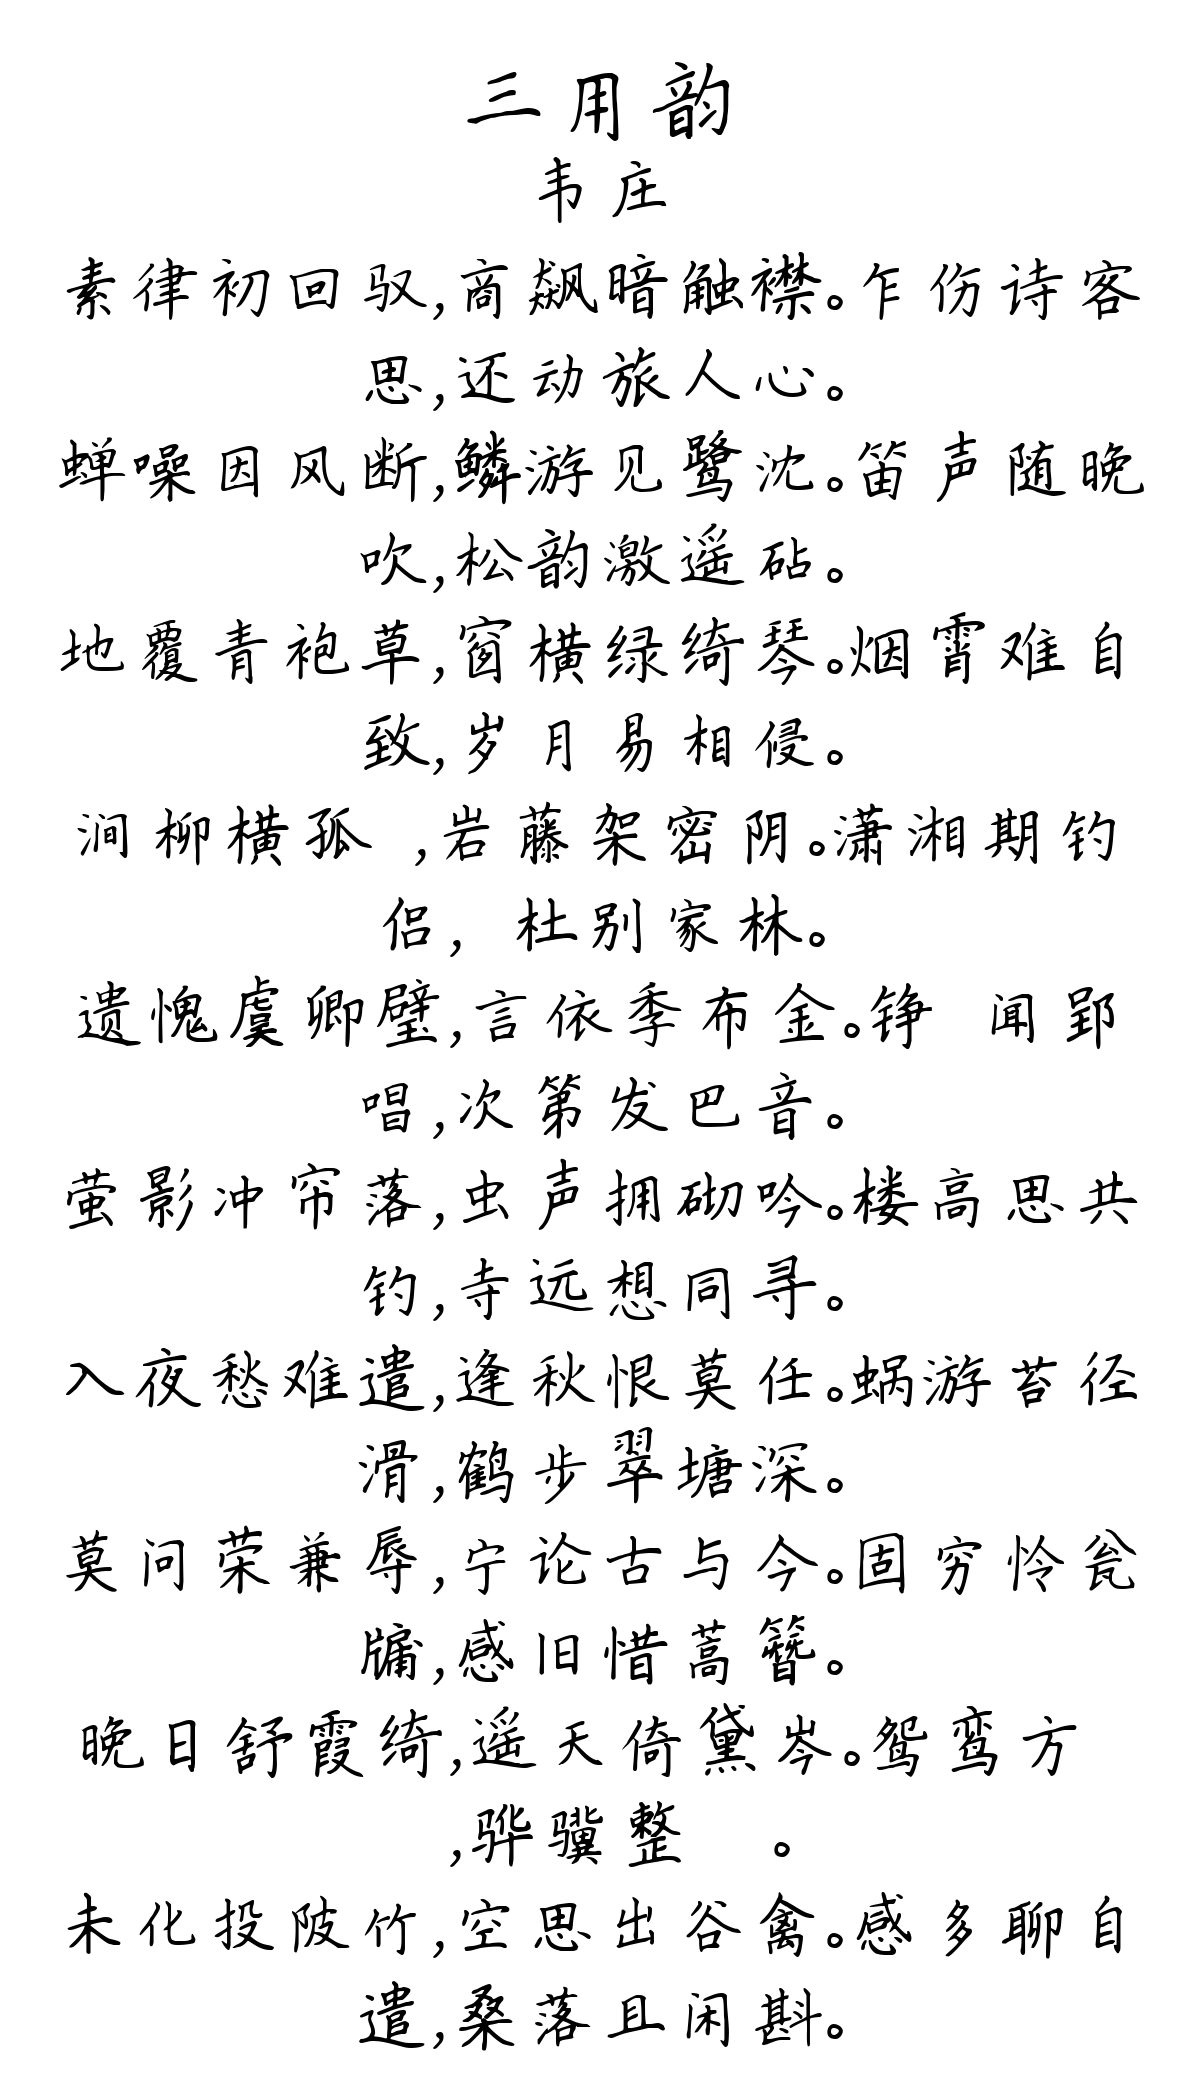 三用韵
韦庄
素律初回驭,商飙暗触襟。乍伤诗客
思,还动旅人心。
蝉噪因风断,鳞游见鹭沈。笛声随晚
吹,松韵激遥砧。
地覆青袍草,窗横绿绮琴。烟霄难自
致,岁月易相侵。
涧柳横孤 ,岩藤架密阴。潇湘期钓
侣, 杜别家林。
遗愧虞卿璧,言依季布金。铮 闻郢
唱,次第发巴音。
萤影冲帘落,虫声拥砌吟。楼高思共
钓,寺远想同寻。
入夜愁难遣,逢秋恨莫任。蜗游苔径
滑,鹤步翠塘深。
莫问荣兼辱,宁论古与今。固穷怜瓮
牖,感旧惜蒿簪。
晚日舒霞绮,遥天倚黛岑。鸳鸾方
,骅骥整 。
未化投陂竹,空思出谷禽。感多聊自
遣,桑落且闲斟。